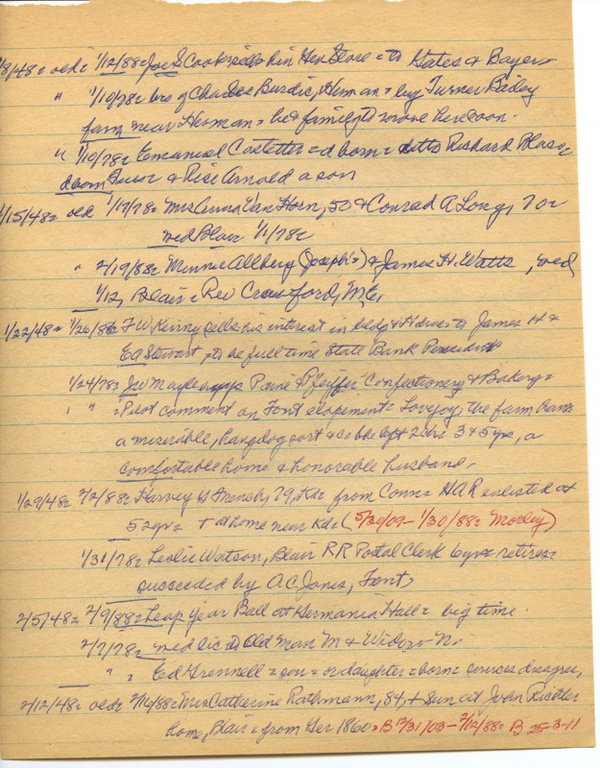 1/8/48 = old = 1/12/88 = Joe S Cook sells his Gen Store = to Kates & Bayers
" 1/10/78 = bro of Charles Burdic, Herman = buy Turner Bailey
farm near Herman = he & family to move here soon.
" 1/10/78 = Emanuel Castetter = d born = ditto Richard Blaco
d born & Rice Arnold a son
1/15/48 = old 1/17/78 = Mrs Anna Van Horn, 50 & Conrad A Long, 70 =
wed Blair 1/1/78 =
" 2/19/88 = Minnie Allberg (Joseph's) & James H. Watts, wed
1/12, Blair = Rev Crawford, M.E.
1/22/48 = 1/26/88 = F W Kenny sells his interest in bldg & Hdwe = to James H &
Ed Stewart = to be full time State Bank President
1/24/78 = Jw Maple Paine & Pfeiffer Confectionery & Bakery =
" " = Pilot comment on Font elopement = Lovejoy, the farm
a miserable, hangdog sort & she left 2 chi 3 & 5 yrs, a
comfortable home & honorable husband.
1/29/48 = 2/2/88 = Harvey French, 79, from Conn = HAR enlisted at
52 yr = + at home near (5/30/09 - 1/30/88 = Morley)
1/31/78 = Leslie Watson, Blair RR Postal Clerk 6 yrs = retires =
succeeded by A.C. Jones, Font.
2/5/48 = 2/9/88 = Leap Year Ball at Germania Hall = big time.
2/7/78 = wed lic to Old Man M & Widow N.
" = Ed Grennell = son = or daughter = born = sources disagree,
2/12/48 = old = 2/16/88 = Mrs Catherine Rathmann, 84, + Sun at John
home, Blair = from Ger 1860 = B 12/31/03 - 2/12/88 = B 25-3-11